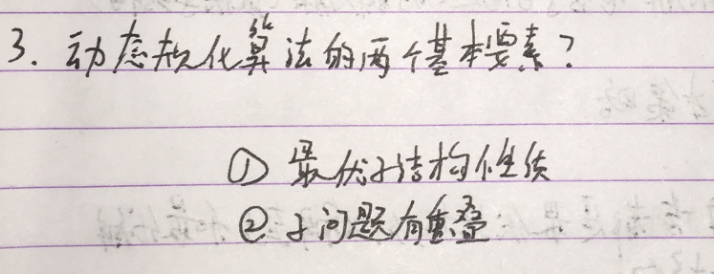 3. 动态规化算法的两个基本要素?
① 最优子结构性质
② 子问题有重叠